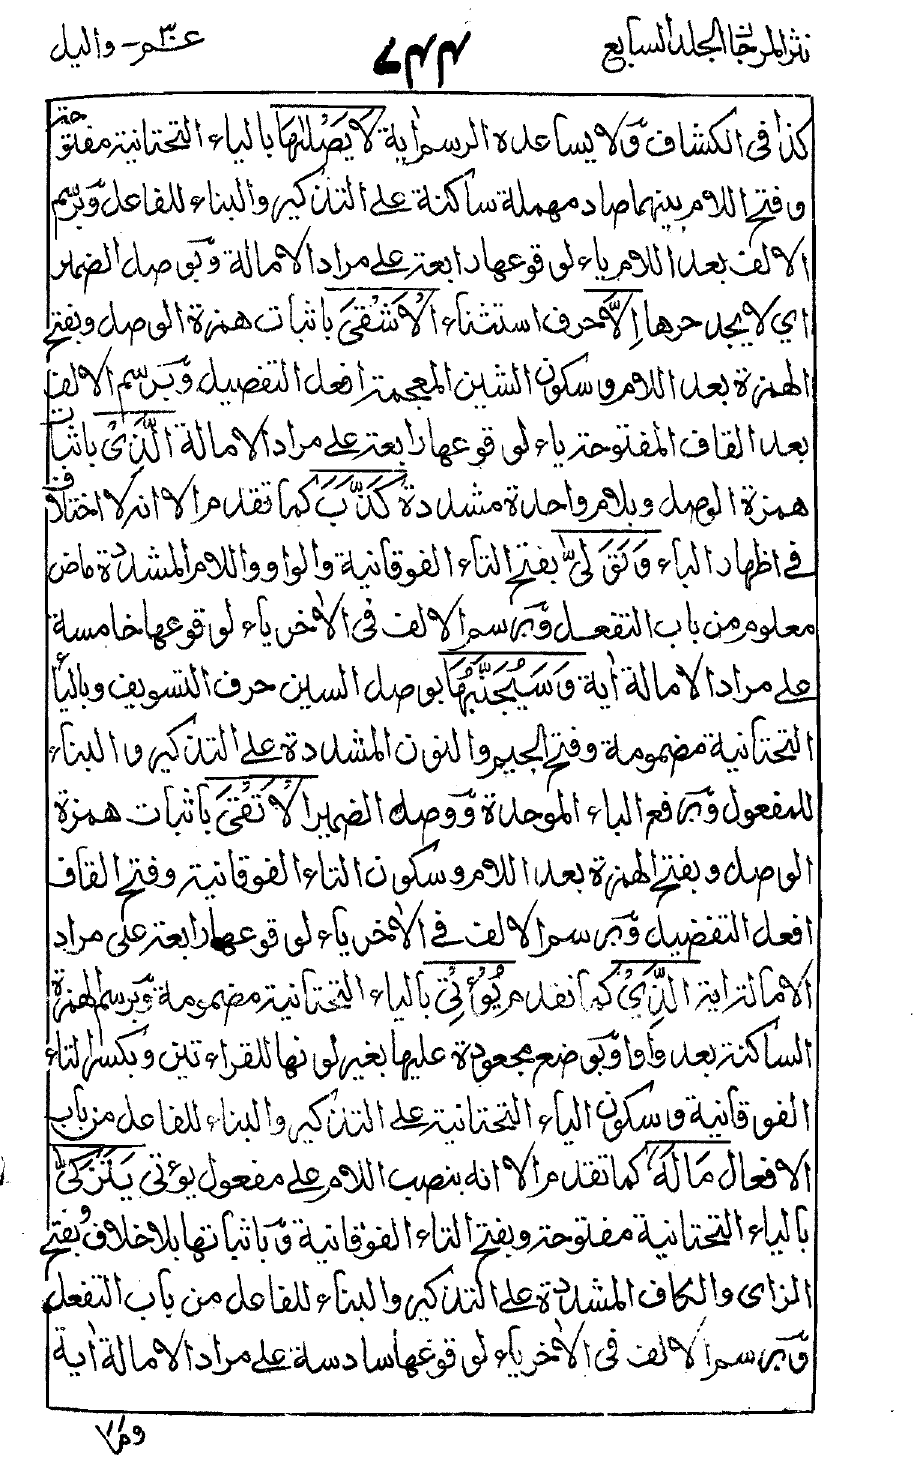 نثر المرجان الجلد السابع
٧٤٤
عمّ ٣٠ - واليل
كذا فى الكشاف وَّلا يساعده الرسم اٰية لَا يَصْلٰىهَا بالياء التحتانية مفتوحة
وفتح اللام بينهما صاد مهملة ساكنة على التذكير والبناء للفاعل وَّبرسم
الالف بعد اللام ياء لوقوعها رابعة على مراد الامالة وَّبوصل الضمير
اى لا يجد حرها اِلَّا حرف استثناء الْاَشْقَى باثبات همزة الوصل وبفتح
الهمزة بعد اللام وسكون الشين المعجمة افعل التفضيل وَّبرسم الالف
بعد القاف المفتوحة ياء لوقوعها رابعة على مراد الامالة الَّذِىْ باثبات
همزة الوصل وبلام واحدة مشددة كَذَّبَ كما تقدم الا انه لا اختلاف
فى اظهار الباء وَتَوَلّٰى بفتح التاء الفوقانية والواو واللام المشددة ماض
معلوم من باب التفعل وَّبرسم الالف فى الاٰخر ياء لوقوعها خامسة
على مراد الامالة اٰية وَسَيُجَنَّبُهَا بوصل السين حرف التسويف وبالياء
التحتانية مضمومة وفتح الجيم والنون المشددة على التذكير والبناء
للمفعول وَّبرفع الباء الموحدة وَّوصل الضمير الْاَتْقَى باثبات همزة
الوصل وبفتح الهمزة بعد اللام وسكون التاء الفوقانية وفتح القاف
افعل التفضيل وَّبرسم الالف فى الاٰخر ياء لوقوعها رابعة على مراد
الامالة اٰية الَّذِىْ كما تقدم يُؤْتِىْ بالياء التحتانية مضمومة وَّبرسم الهمزة
الساكنة بعد واوا وَّبوضع مجعودة عليها بغير لونها للقراءتين وبكسر التاء
الفوقانية وسكون الياء التحتانية على التذكير والبناء للفاعل من باب
الافعال مَالَهٗ كما تقدم الا انه بنصب اللام على مفعول يؤتى يَتَزَكّٰى
بالياء التحتانية مفتوحة وبفتح التاء الفوقانية وَّباثباتها بلا خلاف وبفتح
الزاى والكاف المشددة على التذكير والبناء للفاعل من باب التفعل
وَّبرسم الالف فى الاٰخر ياء لوقوعها سادسة على مراد الامالة اٰية
وما